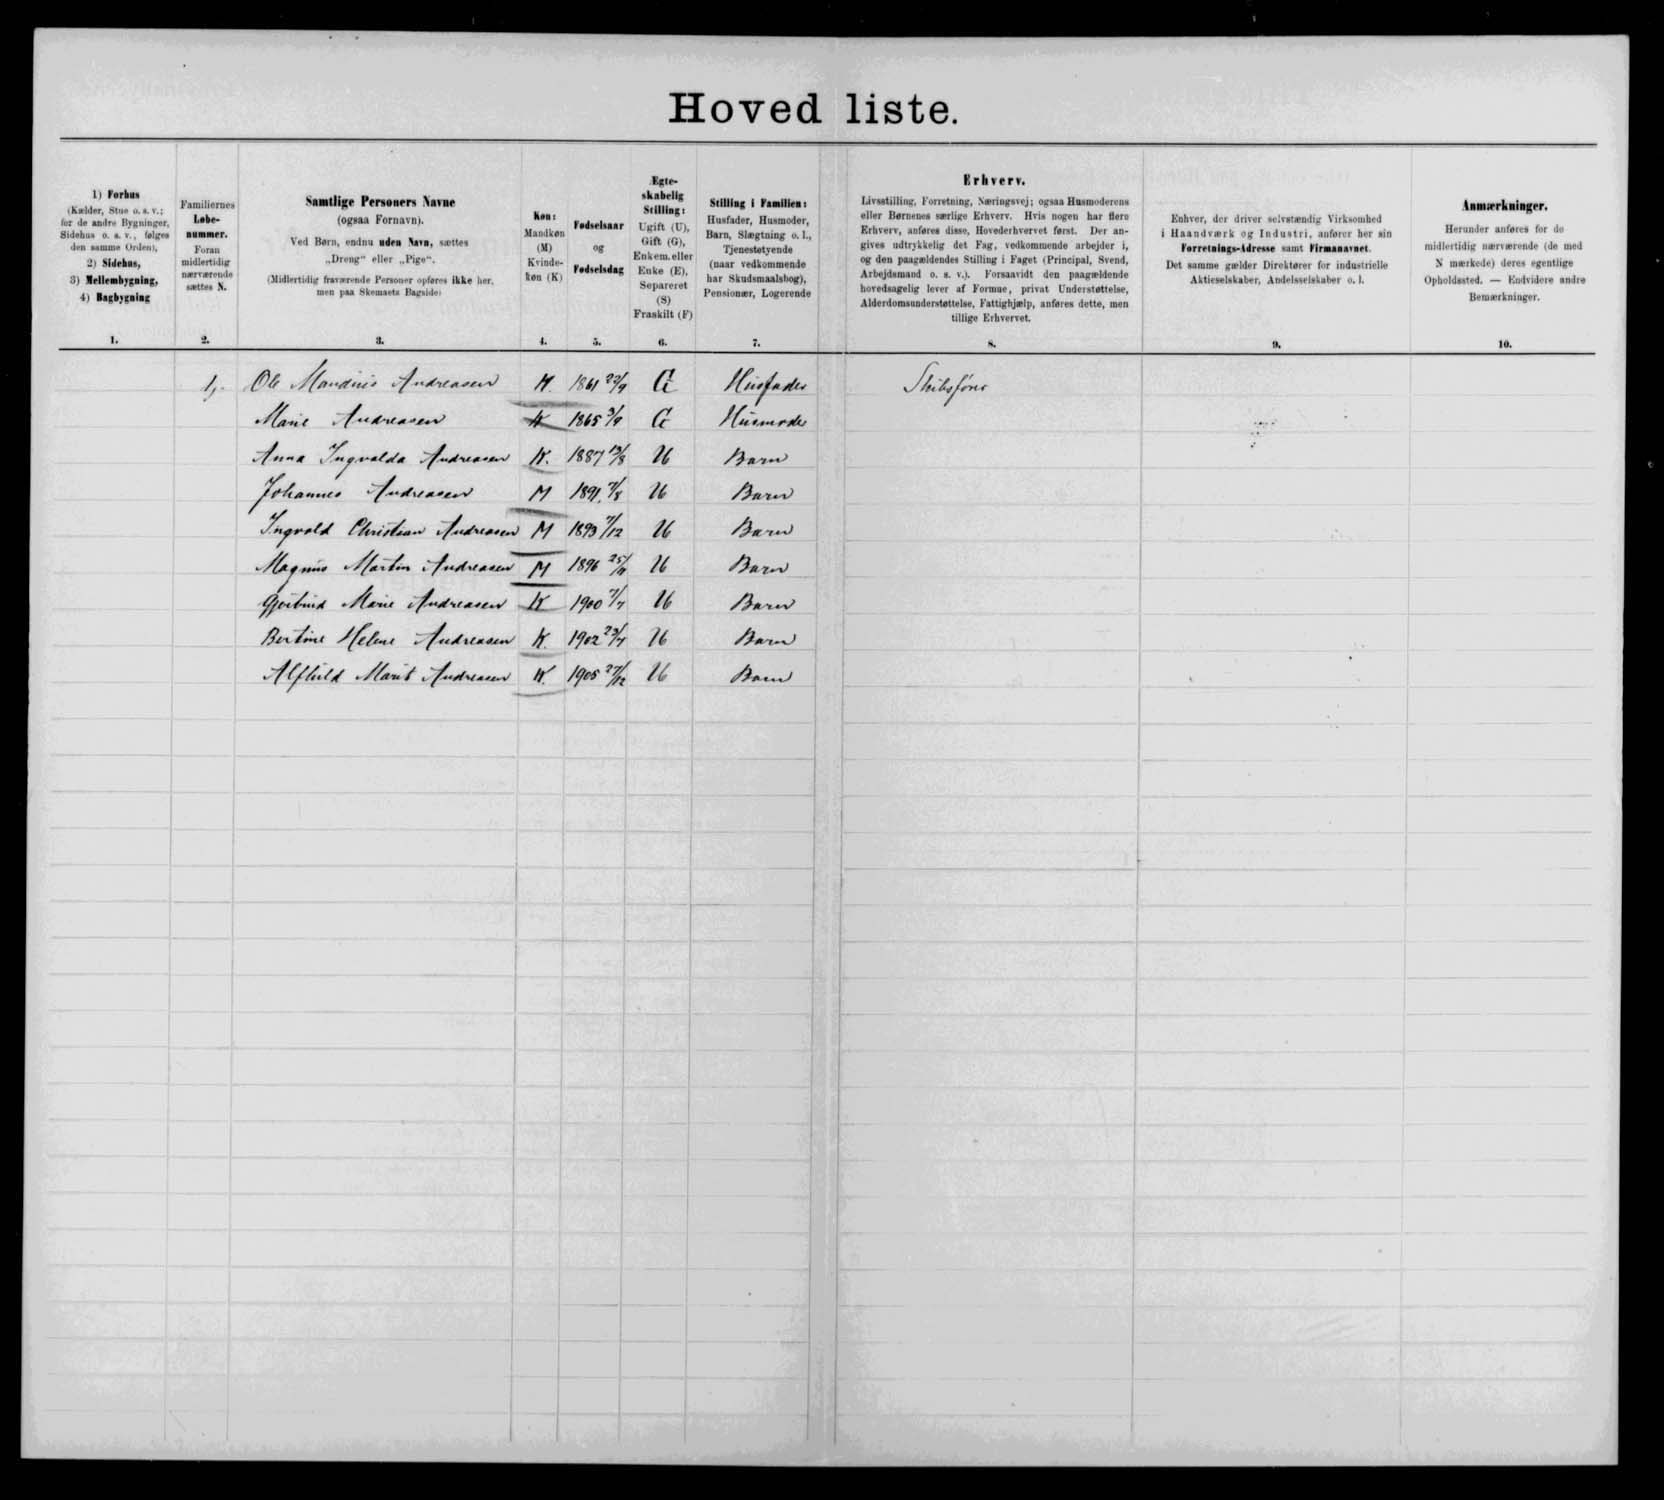 Hoved liste.
1) Forhus
(Kælder, Stue o. s. v.;
for de andre Bygninger,
Sidehus o. s. v., følges
den samme Orden),
2) Sidehus,
3) Mellembygning,
4) Bagbygning
1.
Familiernes
Løbe-
nummer.
Foran
midlertidig
nærværende
sættes N.
2.
Samtlige Personers Navne
(ogsaa Fornavn).
Ved Børn, endnu uden Navn, sættes
„Dreng“ eller „Pige“.
(Midlertidig fraværende Personer opføres ikke her,
men paa Skemaets Bagside)
3.
Køn:
Mandkøn
(M)
Kvinde-
køn (K)
4.
Fødselsaar
og
Fødselsdag
5.
Ægte-
skabelig
Stilling:
Ugift (U),
Gift (G),
Enkem. eller
Enke (E),
Separeret
(S)
Fraskilt (F)
6.
Stilling i Familien:
Husfader, Husmoder,
Barn, Slægtning o. l.,
Tjenestetyende
(naar vedkommende
har Skudsmaalsbog),
Pensionær, Logerende
7.
Erhverv.
Livsstilling, Forretning, Næringsvej; ogsaa Husmoderens
eller Børnenes særlige Erhverv. Hvis nogen har flere
Erhverv, anføres disse, Hovederhvervet først. Der an-
gives udtrykkelig det Fag, vedkommende arbejder i,
og den paagældendes Stilling i Faget (Principal, Svend,
Arbejdsmand o. s. v.). Forsaavidt den paagældende
hovedsagelig lever af Formue, privat Understøttelse,
Alderdomsunderstøttelse, Fattighjælp, anføres dette, men
tillige Erhvervet.
8.
Enhver, der driver selvstændig Virksomhed
i Haandværk og Industri, anfører her sin
Forretnings-Adresse samt Firmanavnet.
Det samme gælder Direktører for industrielle
Aktieselskaber, Andelsselskaber o. l.
9.
Anmærkninger.
Herunder anføres for de
midlertidig nærværende (de med
N mærkede) deres egentlige
Opholdssted. — Endvidere andre
Bemærkninger.
10.
1,- Ole Mandius Andreasen M. 1861 22/9 G Husfader Skibsfører
Marie Andreasen K 1865 3/9 G Husmoder
Anna Ingvalda Andreasen K. 1887 13/8 U Barn
Johannes Andreasen M 1891. 7/8 U Barn
Ingvald Christian Andreasen M 1893 7/12 U Barn
Magnus Martin Andreasen M 1896 25/11 U Barn
Marie Andreasen K 1900 7/7 U Barn
Bertine Helene Andreasen K. 1902 23/7 U Barn
Alfhild Marit Andreasen K. 1905 27/12 U Barn